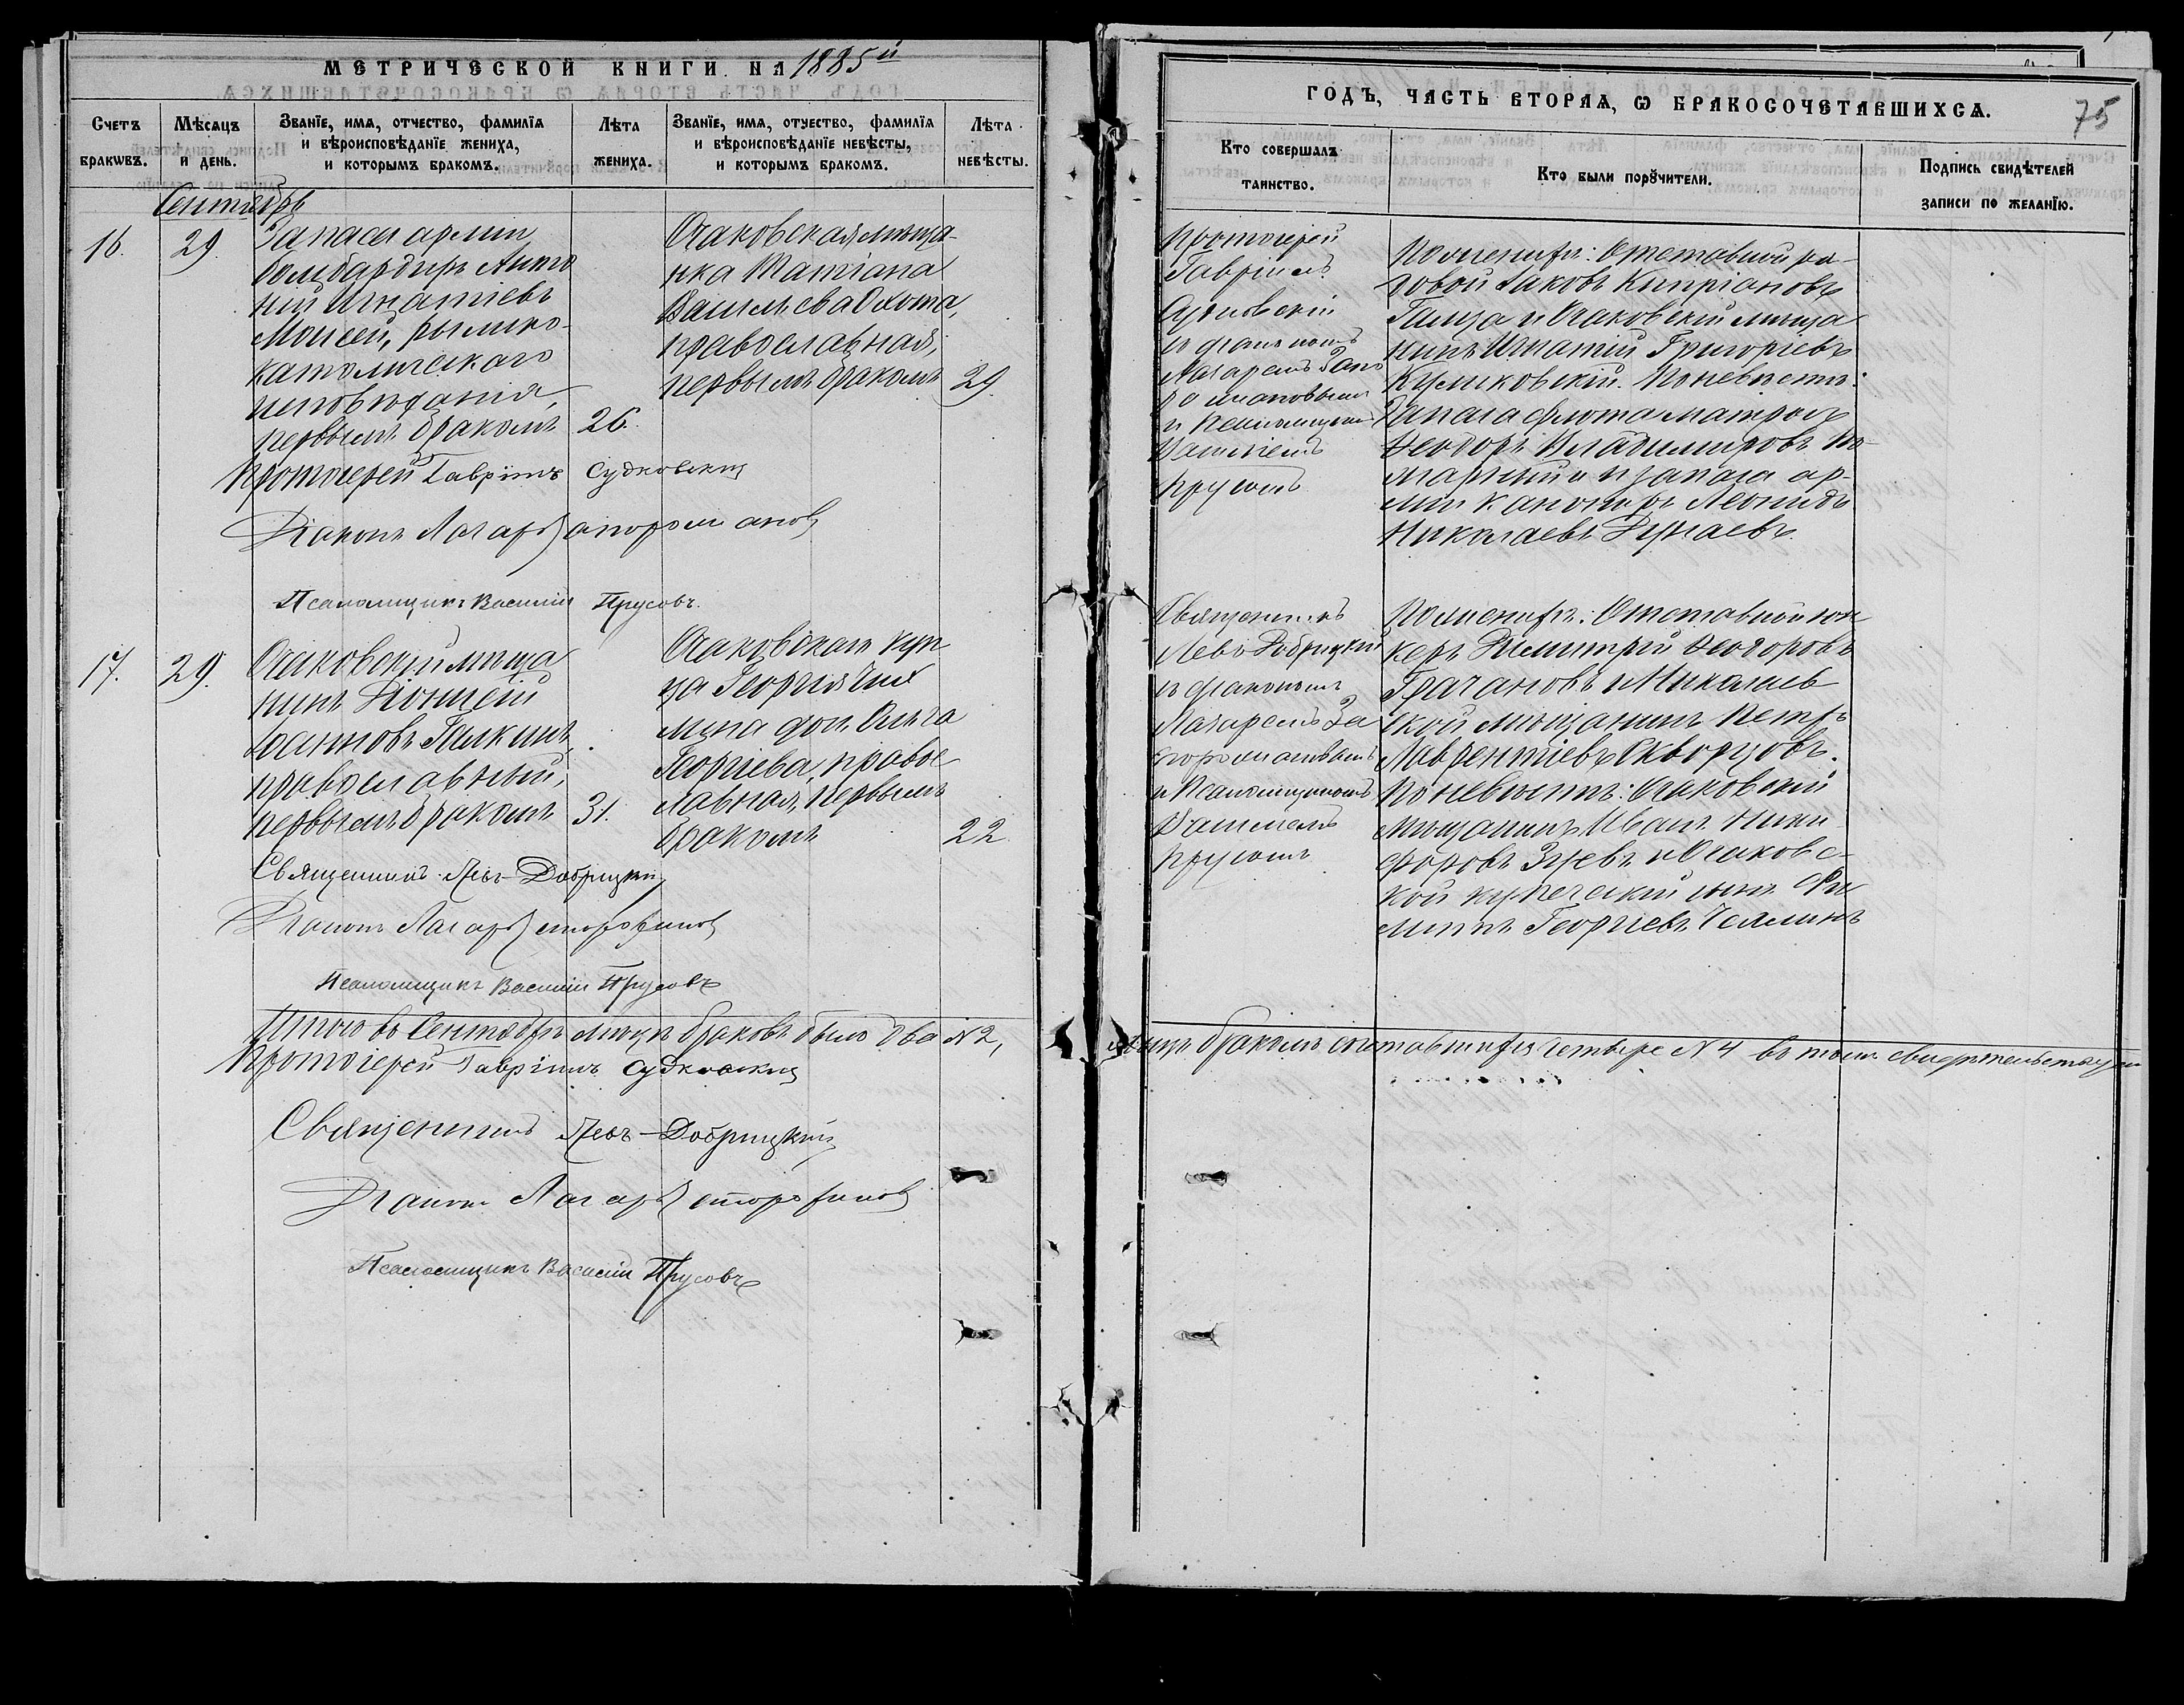 МЕТРИЧЕСКОЙ КНИГИ НА 1885й
Счетъ браковъ.
Мѣсяцъ и день.
Званїе, имя, отчество, фамилїя
и вѣроисповѣданїе жениха,
и которымъ бракомъ.
Лѣта
жениха.
Званїе, имя, отчество, фамилїя
и вѣроисповѣданїе невѣсты,
и которымъ бракомъ.
Лѣта
невѣсты.
Сентябрь
16. 29.
Запаса арміи
бомбардиръ Анто
ній Игнатіевъ
Моисей, римско-
католическаго
исповѣданія,
первымъ бракомъ 26.
Очаковская мѣща-
нка Татіана
Васильева Охота,
православная,
первымъ бракомъ 29.
Протоіерей Гавріилъ Судковскій
Діаконъ Лазарь Запорожановъ
Псаломщикъ Василій Прусовъ.
17. 29.
Очаковскій мѣща
нинъ
Іоанновъ Галкинъ,
православный,
первымъ бракомъ 31.
Очаковскаго куп
ца Георгія
дочь Ольга
Георгіева, правос
лавная, первымъ
бракомъ 22
Священникъ Левъ Добрицкій
Діаконъ Лазарь Запорожановъ
Псаломщикъ Василій Прусовъ
Итого въ Сентябрѣ мѣсяцѣ браковъ было два №2,
Протоіерей Гавріилъ Судковскій
Священникъ Левъ Добрицкій
Діаконъ Лазарь Запорожановъ
Псаломщикъ Василій Прусовъ
ГОДЪ, ЧАСТЬ ВТОРАЯ, Ѡ БРАКОСОЧЕТАВШИХСЯ.
75
Кто совершалъ
таинство.
Кто были порꙋчители.
Подпись свидѣтелей
записи по желанїю.
Протоіерей
Гавріилъ
Судковскій
съ діакономъ
Лазаремъ Запо
рожановымъ
и Псаломщикомъ
Василіемъ
Прусовымъ
По женихѣ: Отставной ря-
довой Іаковъ Кипріановъ
и Очаковскій мѣща
нинъ Игнатій Григоріевъ
Куликовскій. По невѣстѣ:
Запаса флота матросъ
Ѳеодоръ Владиміровъ
и запаса ар-
міи канониръ Леонидъ
Николаевъ Дунаевъ.
Священникъ
Левъ Добрицкій
съ діакономъ
Лазаремъ За
порожановымъ
и Псаломщикомъ
Василіемъ
Прусовымъ
По женихѣ: Отставной юн
керъ Димитрій Ѳеодоровъ
и Николаев
ской мѣщанинъ Петръ
Лаврентіевъ Скворцовъ.
По невѣстѣ: Очаковскій
мѣщанинъ Иванъ Ники
форовъ Зуевъ и Очаковс-
кой купеческій сынъ Фи
липпъ Георгіевъ
лицъ бракомъ сочетавшихся четыре №4 въ томъ свидѣтельствуемъ